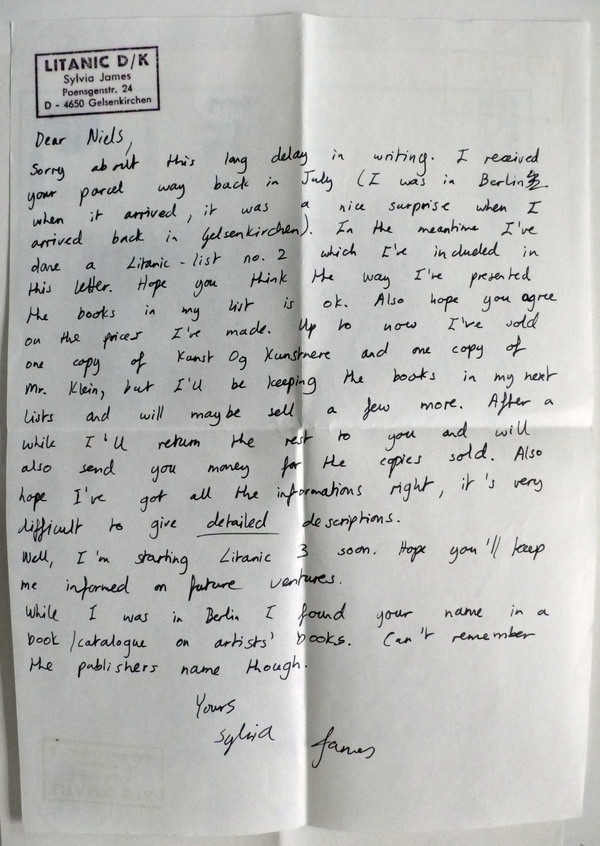 LITANIC D/K
Sylvia James
Poensgenstr. 24
D - 4650 Gelsenkirchen
Dear Niels,
Sorry about this long delay in writing. I received
your parcel way back in July (I was in Berlin
when it arrived, it was a nice surprise when I
arrived back in Gelsenkirchen). In the meantime I've
done a Litanic - list no. 2 which I've included in
this letter. Hope you think the way I've presented
the books in my list is ok. Also hope you agree
on the prices I've made. Up to now I've sold
one copy of Kunst Og Kunstnere and one copy of
Mr. Klein, but I'll be keeping the books in my next
lists and will maybe sell a few more. After a
while I'll return the rest to you and will
also send you money for the copies sold. Also
hope I've got all the informations right, it's very
difficult to give detailed descriptions.
Well, I'm starting Litanic 3 soon. Hope you'll keep
me informed on future ventures.
While I was in Berlin I found your name in a
book/catalogue on artists' books. Can't remember
the publishers name though.
Yours
Sylvia James